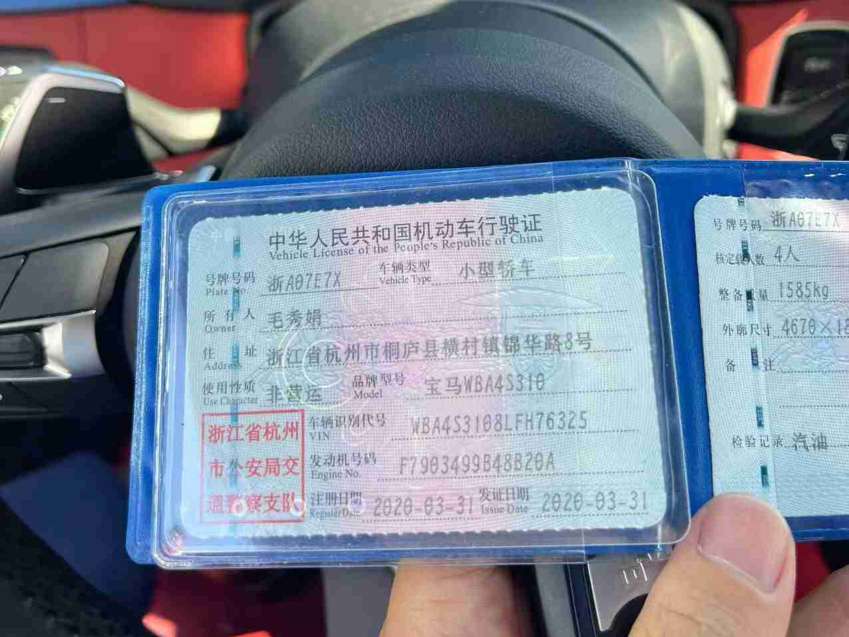 中华人民共和国机动车行驶证
Vehicle License of the People's Republic of China
号牌号码 浙A07E7X 车辆类型 小型轿车
Plate No. Vehicle Type
所有人 毛秀娟
Owner
住址 浙江省杭州市桐庐县横村镇锦华路8号
Address
使用性质 非营运 品牌型号 宝马WBA4S310
Use Character Model
浙江省杭州市公安局交通警察支队
车辆识别代号 WBA4S3108LFH76325
VIN
发动机号码 F7903499B48B20A
Engine No.
注册日期 2020-03-31 发证日期 2020-03-31
Register Date Issue Date
号牌号码 浙A07E7X
核定载人数 4人
整备质量 1585kg
外廓尺寸 4670×18
备注
检验记录 汽油